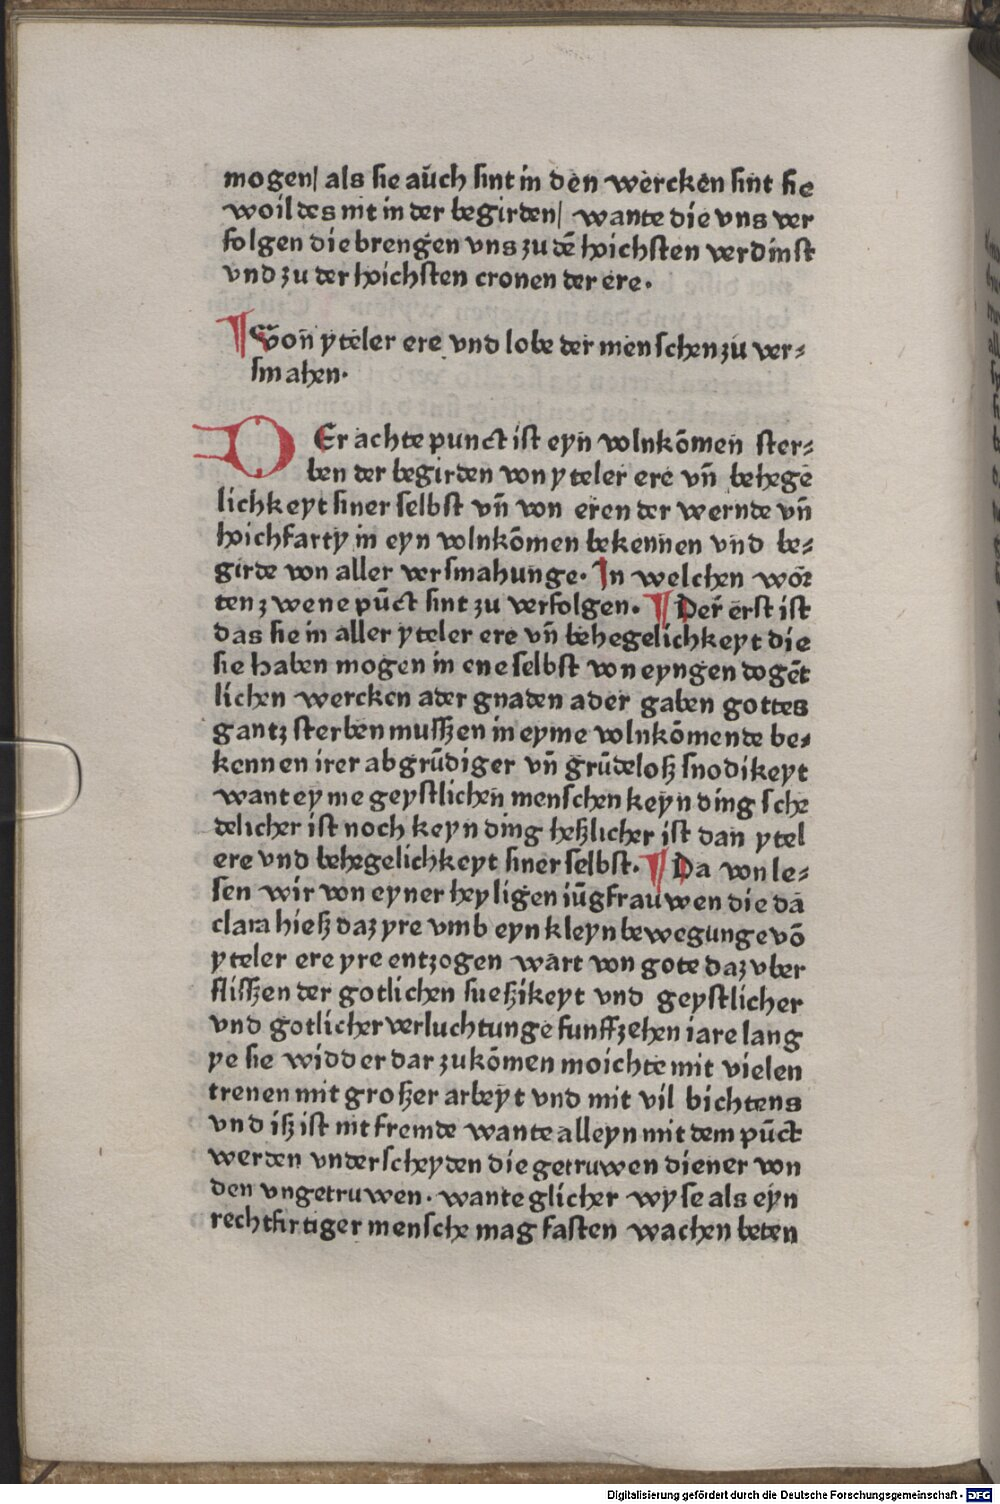 mogen| als sie auch sint in den wercken sint sie
woil des nit in der begirden| wante die vns ver
folgen die brengen vns zu dē hoichsten verdinst
vnd zu der hoichsten cronen der ere.
¶ Von yteler ere vnd lobe der menschen zu ver⸗
smahen.
DEr achte punct ist eyn volnkōmen ster⸗
ben der begirden von yteler ere vn̄ behege
lichkeyt siner selbst vn̄ von eren der wernde vn̄
hoichfarty in eyn volnkōmen bekennen vnd be⸗
girde von aller versmahunge. In welchen wor
ten zwene pūct sint zu verfolgen. ¶ Der erst ist
das sie in aller yteler ere vn̄ behegelichkeyt die
sie haben mogen in ene selbst von eyngen dogēt
lichen wercken ader gnaden ader gaben gottes
gantz sterben mussen in eyme volnkōmende be⸗
kennen irer abgrūdiger vn̄ grūdeloß snodikeyt
want eyme geystlichen menschen keyn ding sche
delicher ist noch keyn ding heßlicher ist dan ytel
ere vnd behegelichkeyt siner selbst. ¶ Da von le⸗
sen wir von eyner heyligen iūgfrauwen die da
clara hieß daz yre vmb eyn kleyn bewegunge vō
yteler ere yre entzogen wart von gote daz vber
flissen der gotlichen sueßikeyt vnd geystlicher
vnd gotlicher verluchtunge funffzehen iare lang
ye sie widder dar zu kōmen moichte mit vielen
trenen mit großer arbeyt vnd mit vil bichtens
vnd iß ist nit fremde wante alleyn mit dem pūct
werden vnderscheyden die getruwen diener von
den vngetruwen. wante glicher wyse als eyn
rechtfirtiger mensche mag fasten wachen beten
Digitalisierung gefördert durch die Deutsche Forschungsgemeinschaft - DFG